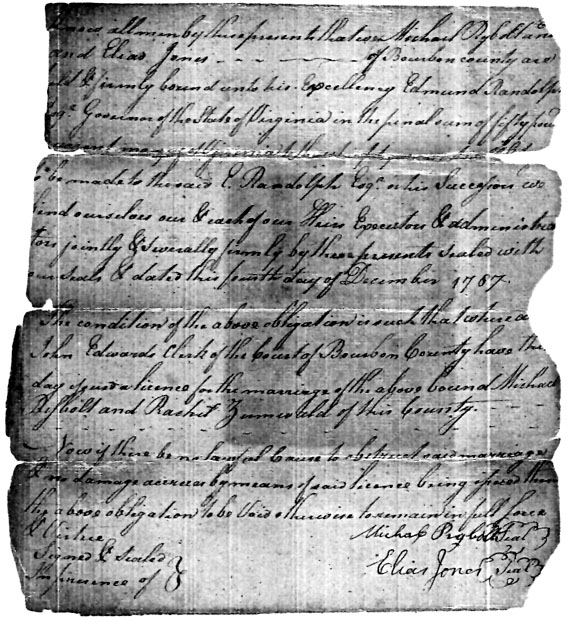 all men by these presents that we Michael Rybolt and
and Elias Jones - - - - of Bourbon county are
& firmly bound unto his Excellency Edmund Randolph
Governor of the State of Virginia in the penal sum of fifty pou
be made to the said E. Randolph Esqr. or his Successors we
bind ourselves our & each of our Heirs Executors & administra
tors jointly & severally firmly by these presents sealed with
our seals & dated this fourth day of December 1787.
The condition of the above obligation is such that where as
John Edwards Clerk of the Court of Bourbon County have this
day issued a licence for the marriage of the above bound Michael
Rybolt and of this County.
Now if there be no lawful Cause to obstruct said marriage
& no damage accrues by means of said licence being issued then
the above obligation to be Void otherwise to remain in full force
& Virtue
Michael Rybolt Seal
Signed & Sealed
Elias Jones Seal
In presence of